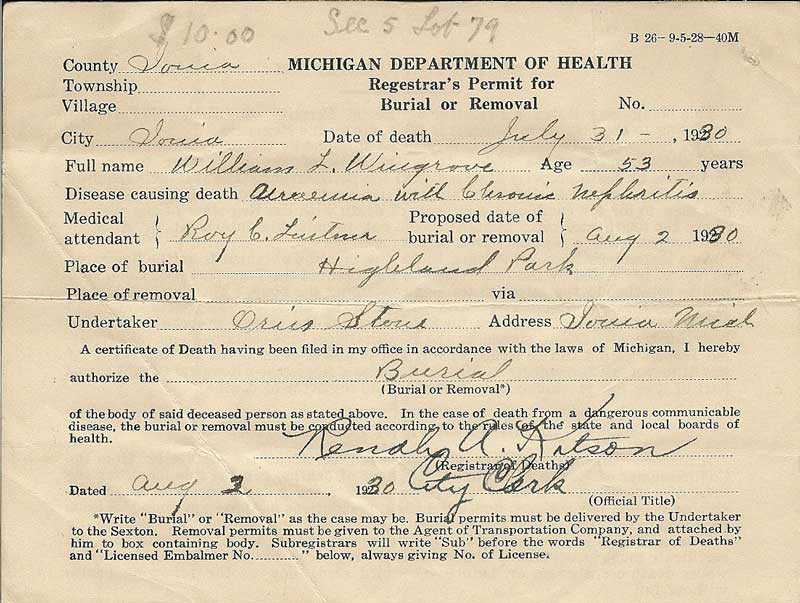 $10.00 Sec 5 Lot 79
B 26—9-5-28—40M
County Ionia MICHIGAN DEPARTMENT OF HEALTH
Township Regestrar's Permit for
Village Burial or Removal No.
City Ionia Date of death July 31 - , 1930
Full name William L. Wingrove Age 53 years
Disease causing death Uraemia with Chronic Nephritis
Medical attendant Roy C. Proposed date of burial or removal Aug 2 1930
Place of burial Highland Park
Place of removal via
Undertaker Orius Stone Address Ionia Mich
A certificate of Death having been filed in my office in accordance with the laws of Michigan, I hereby
authorize the Burial
(Burial or Removal*)
of the body of said deceased person as stated above. In the case of death from a dangerous communicable
disease, the burial or removal must be conducted according to the rules of the state and local boards of
health.
A. Kitson
(Registrar of Deaths)
Dated Aug 2 , 1930 City Clerk
(Official Title)
*Write "Burial" or "Removal" as the case may be. Burial permits must be delivered by the Undertaker
to the Sexton. Removal permits must be given to the Agent of Transportation Company, and attached by
him to box containing body. Subregistrars will write "Sub" before the words "Registrar of Deaths"
and "Licensed Embalmer No. " below, always giving No. of License.